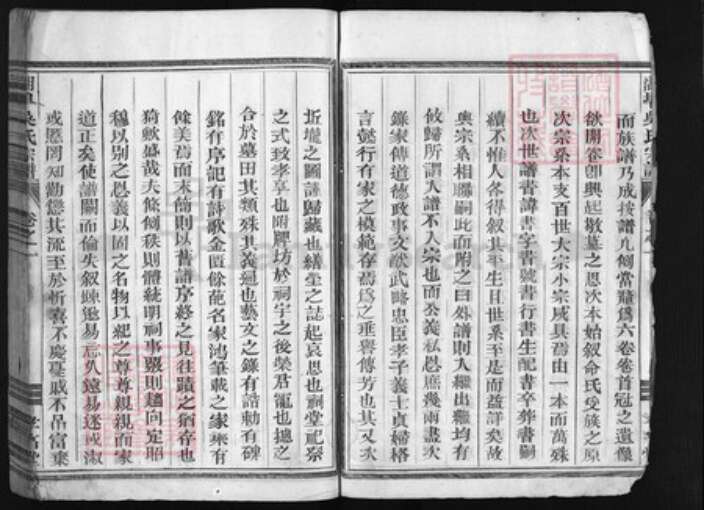 而族譜乃成按譜凡例當釐爲六卷卷首冠之遺像
欲開卷卽興起敬墓之思次本始叙命氏受族之原
次宗系本支百世大宗小宗咸具焉由一本而萬殊
也次世譜書諱書字書號書行書生配書卒葬書嗣
續不惟人各得叙其平生且世系至是而益詳矣故
與宗系相聯嗣此而附之曰外譜則入繼出繼均有
攸歸所謂入譜不入宗也而公義私恩庶幾兩盡次
錄家傳道德政事文猷武略忠臣孝子義士貞婦格
言懿行有家之模範存焉爲之垂譽傳芳也其又次
坵壠之圖誌歸藏也繕塋之誌起哀思也祠堂祀祭
之式致孝享也附牌坊於祠宇之後榮君寵也據之
合於墓田其類殊其義通也藝文之錄有誥勅有碑
銘有序記有詩歌金匱餘葩名家鴻筆載之家乘有
餘美焉而末簡則以舊譜序終之見往蹟之猶存也
猗歟盛哉夫條例秩則體統明祠事嚴則趨向定昭
穆以別之恩義以固之名物以紀之尊尊親親而家
道正矣使譜闕而倫失叙疎邈易忘久遠易迷或淑
或慝罔知勸懲其流至於忻喜不慶憂戚不吊富棄